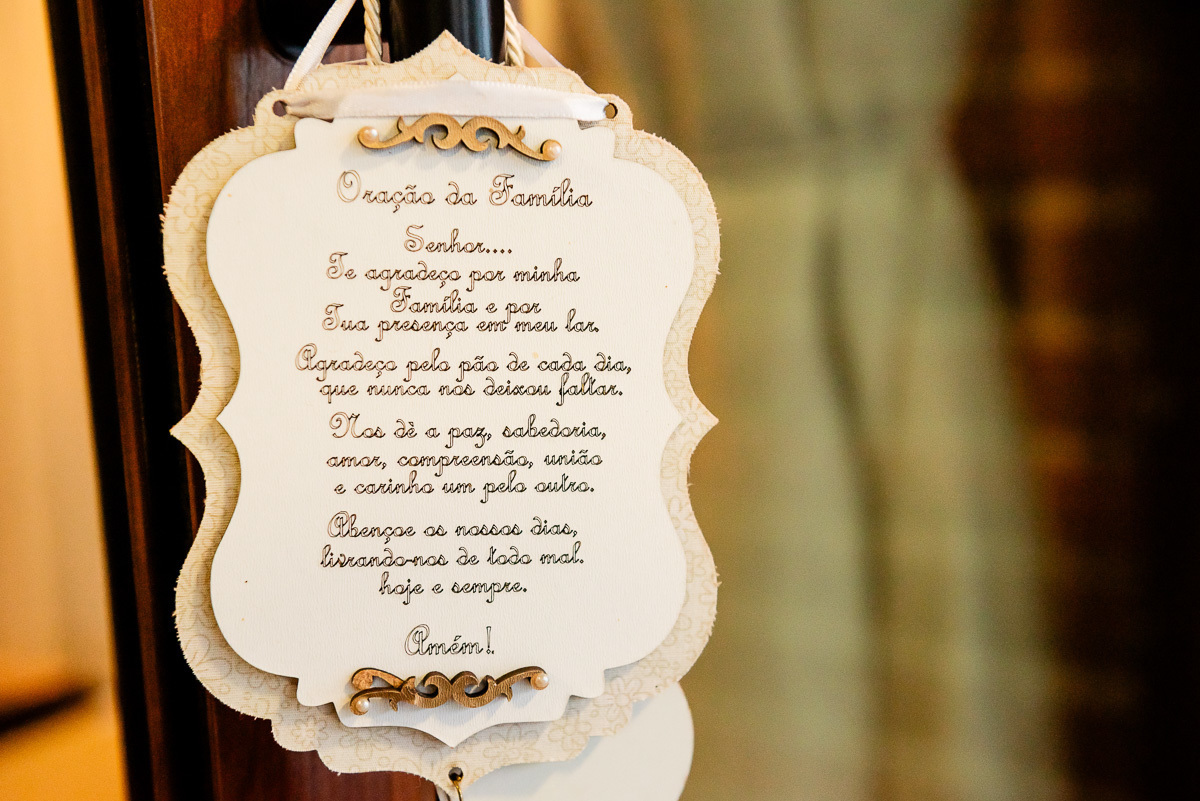 Oração da Família
Senhor....
Te agradeço por minha
Família e por
Tua presença em meu lar.
Agradeço pelo pão de cada dia,
que nunca nos deixou faltar.
Nos dè a paz, sabedoria,
amor, compreensão, união
e carinho um pelo outro.
Abençoe os nossos dias,
livrando-nos de todo mal.
hoje e sempre.
Amém!